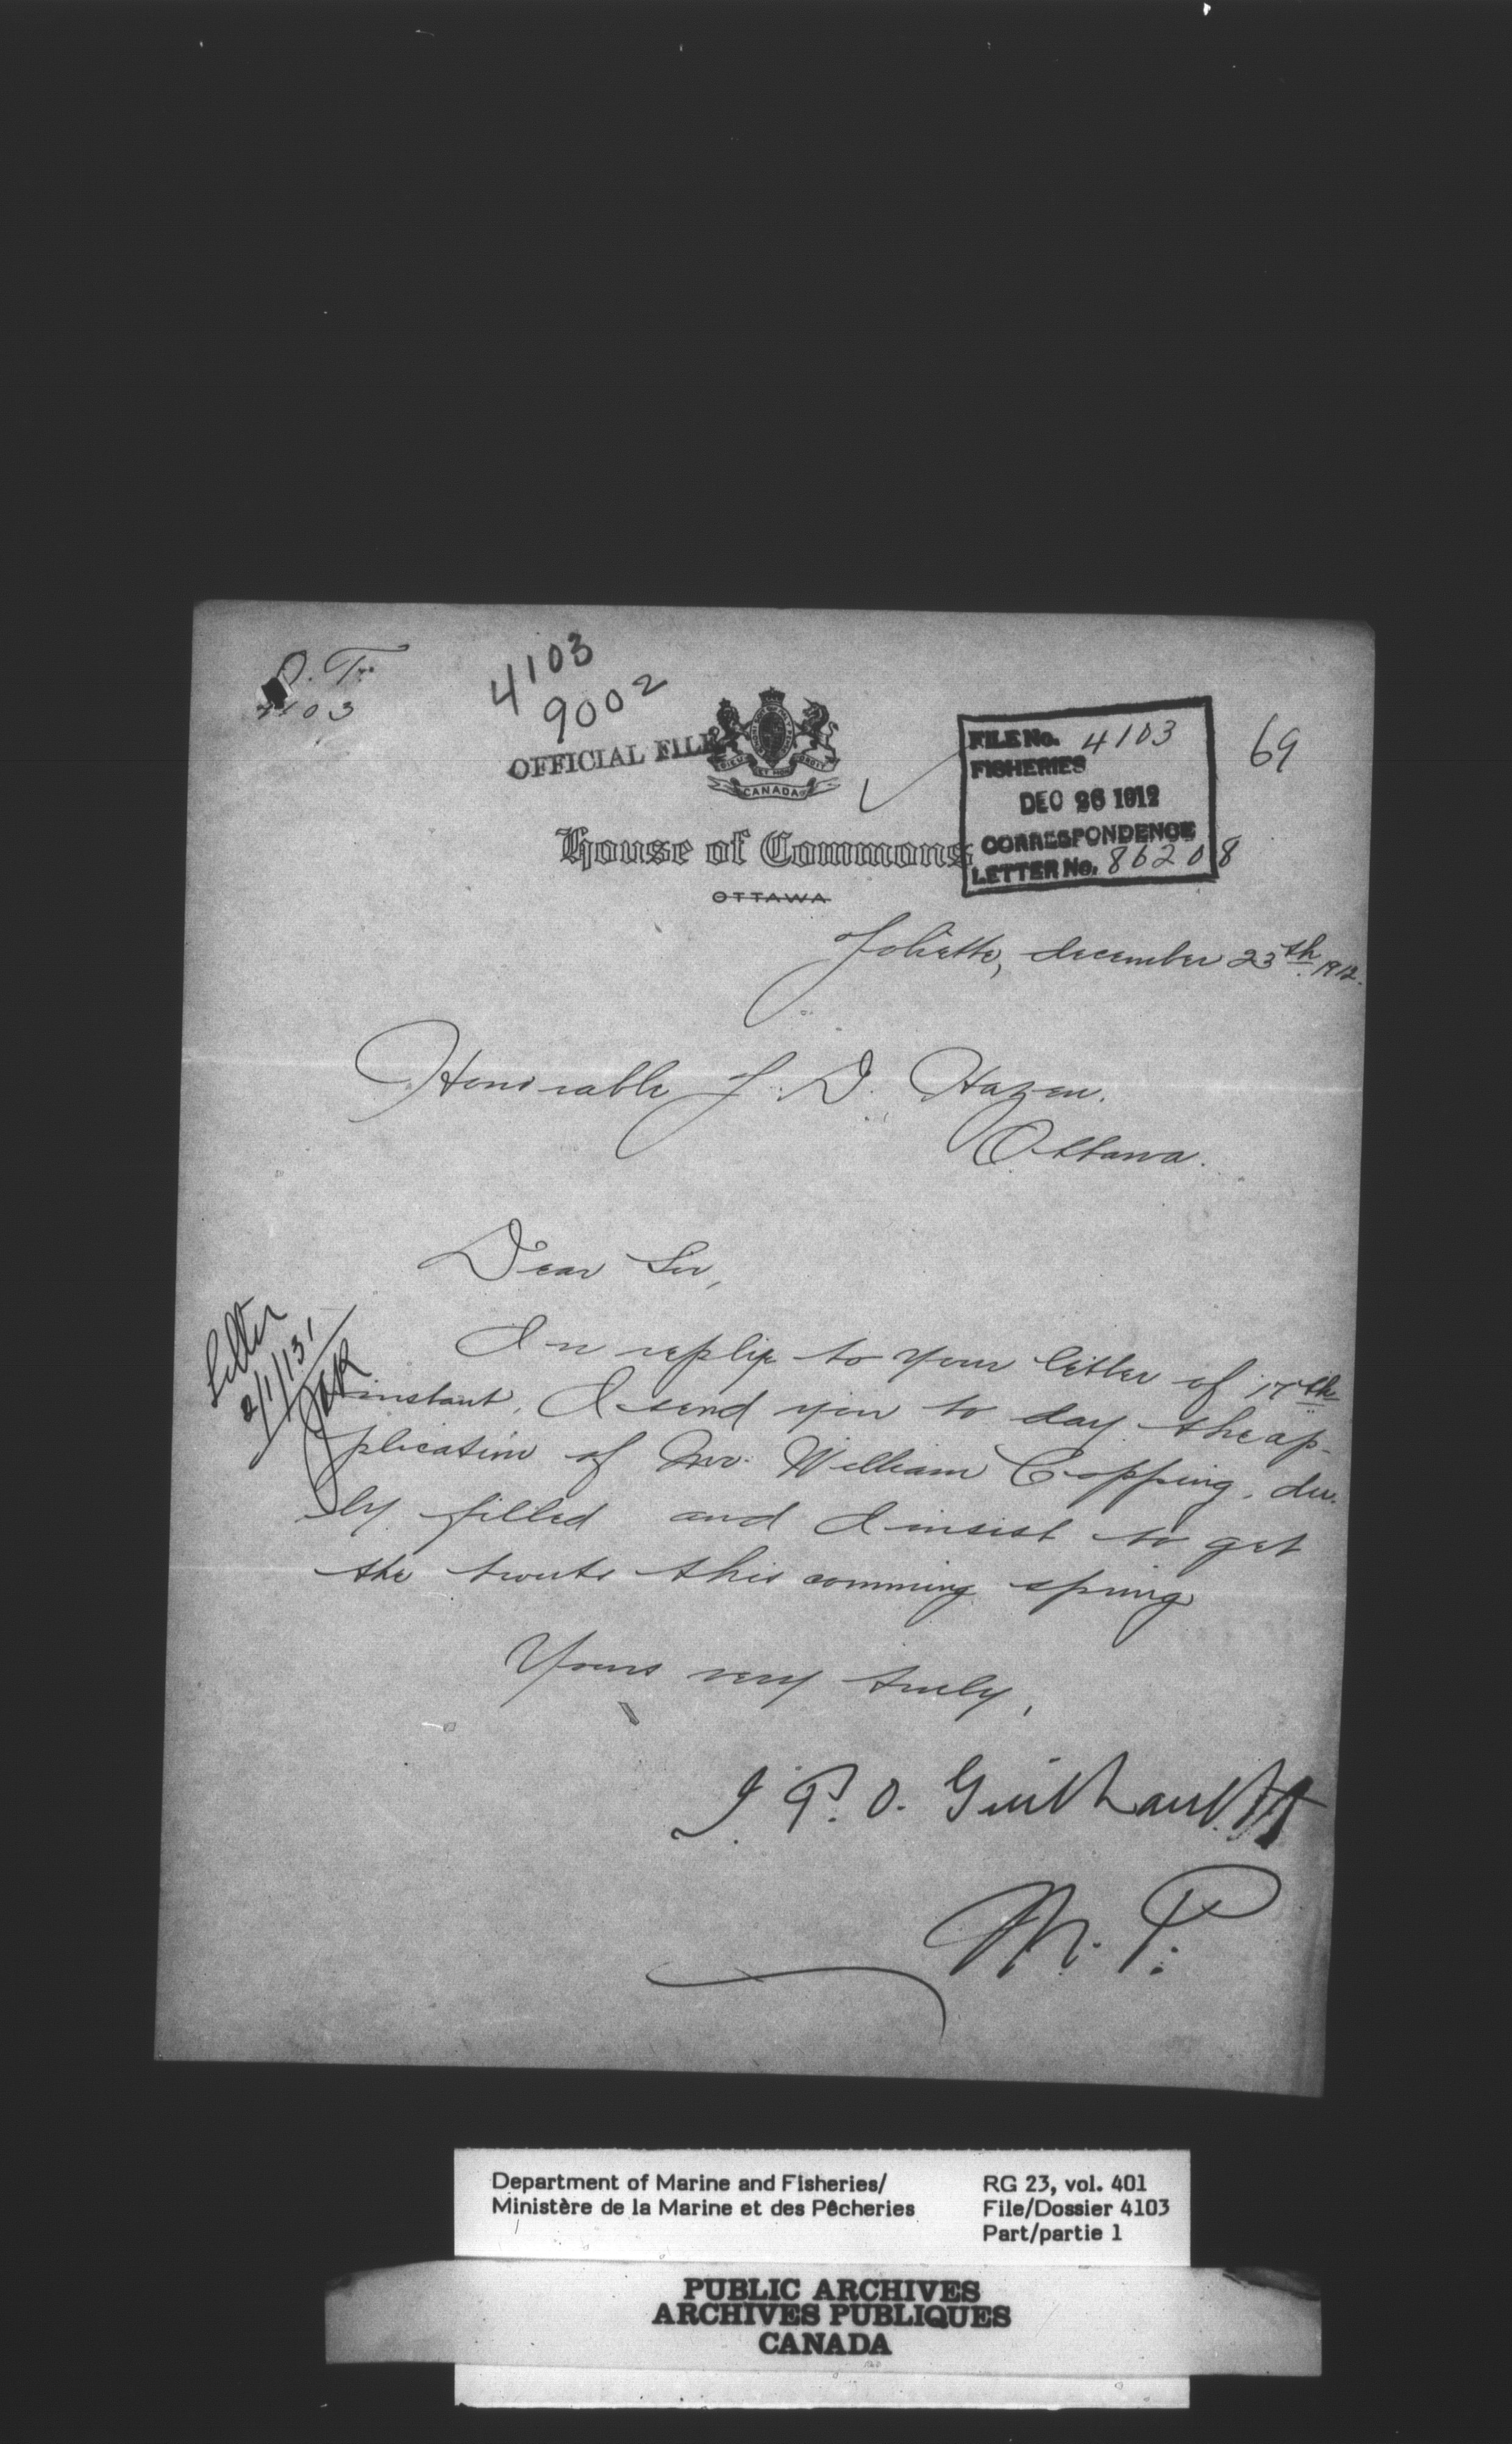 O. T.
4103
4103
9002
OFFICIAL FILE
DIEU ET MON DROIT
CANADA
FILE No. 4103
FISHERIES
DEC 26 1912
CORRESPONDENCE
LETTER No. 86208
69
House of Commons
OTTAWA
Joliette, december 23th 1912.
Honorable J. D. Hazen.
Ottawa.
Dear Sir,
Letter
2/1/13
In reply to your letter of 17th
instant, I send you to day the ap-
plication of Mr. William Copping, du-
ly filled and I insist to get
the trouts this comming spring
Yours very truly,
J. P. O. Guilbault
M. P.
Department of Marine and Fisheries/
Ministère de la Marine et des Pêcheries
RG 23, vol. 401
File/Dossier 4103
Part/partie 1
PUBLIC ARCHIVES
ARCHIVES PUBLIQUES
CANADA